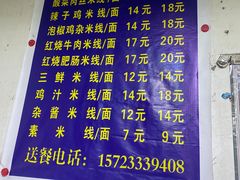 酸菜肉丝米线/面 14元 18元
辣子鸡米线/面 14元 18元
泡椒鸡杂米线/面 14元 18元
红烧牛肉米线/面 17元 20元
红烧肥肠米线/面 17元 20元
三鲜米线/面 12元 14元
鸡汁米线/面 12元 14元
杂酱米线/面 12元 14元
素米线/面 7元 9元
送餐电话：15723339408